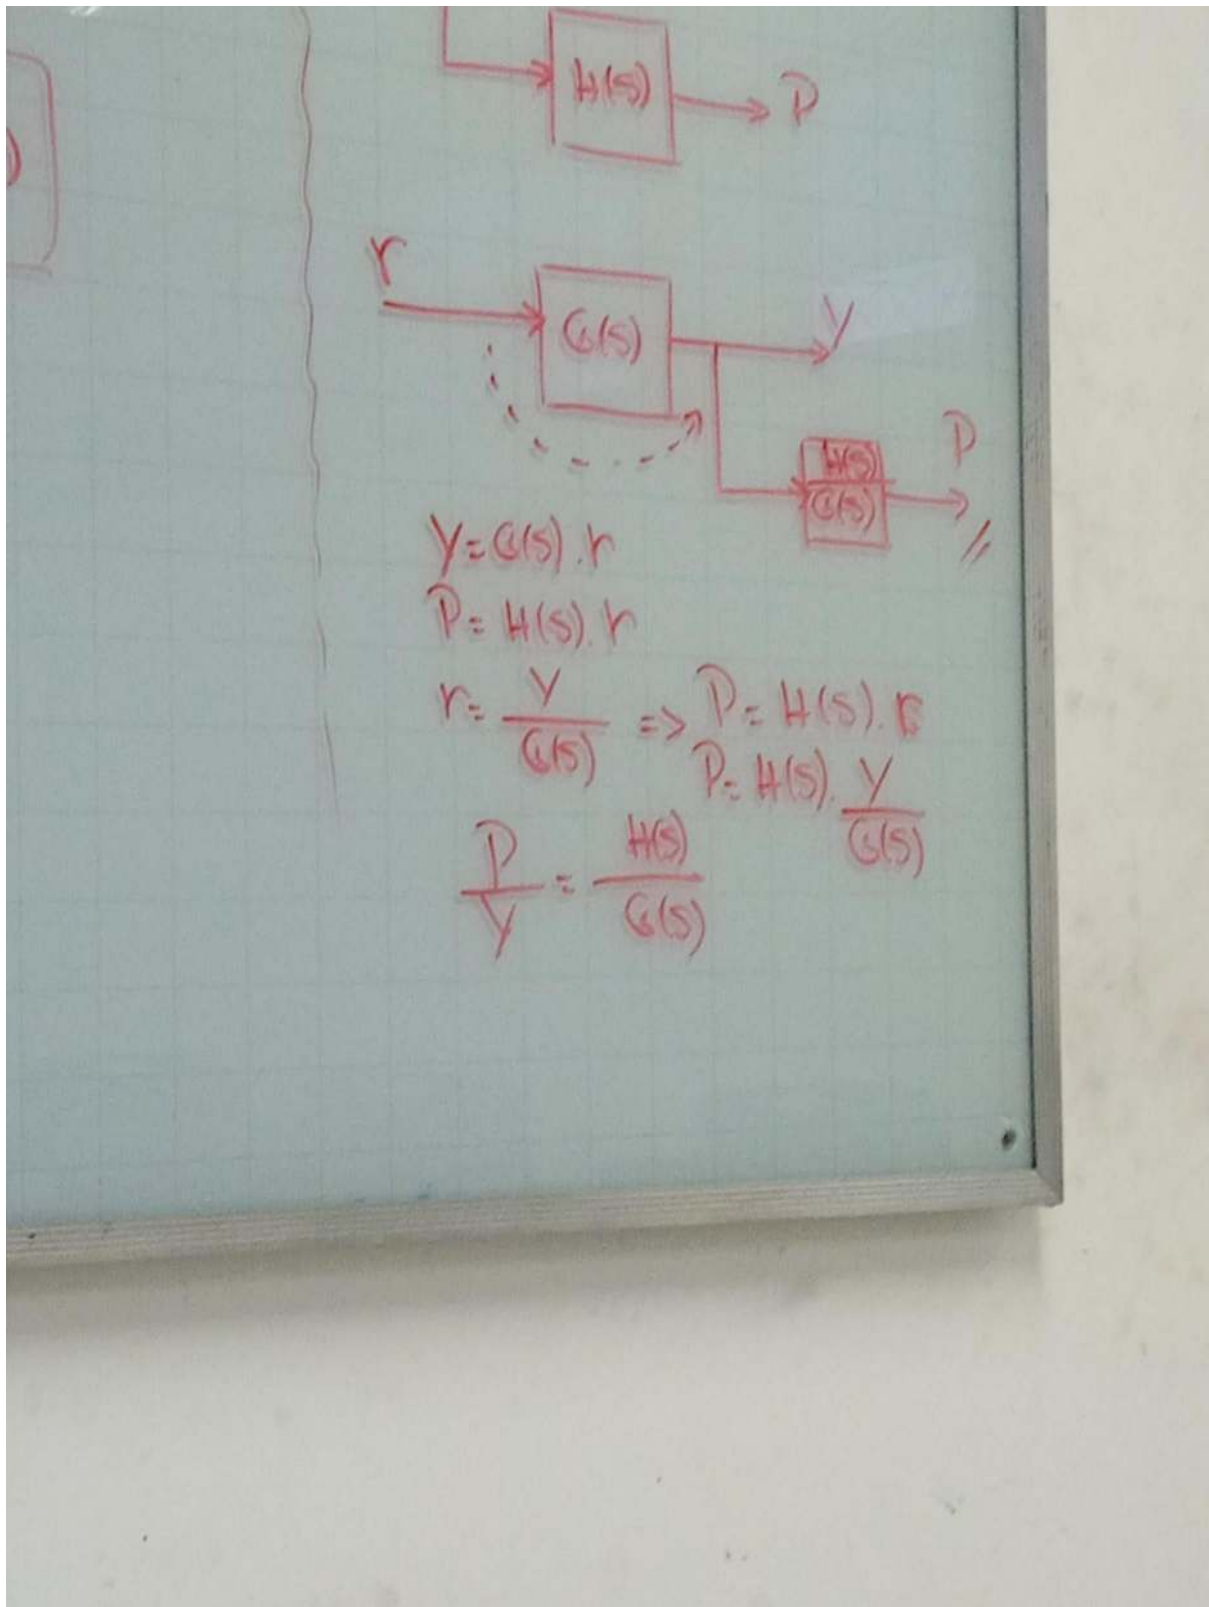 H(s) P
r
G(s) y
P
H(s)
G(s)
y = G(s) . r
P = H(s) . r
r = y / G(s) => P = H(s) . r
P = H(s) . y / G(s)
P / y = H(s) / G(s)